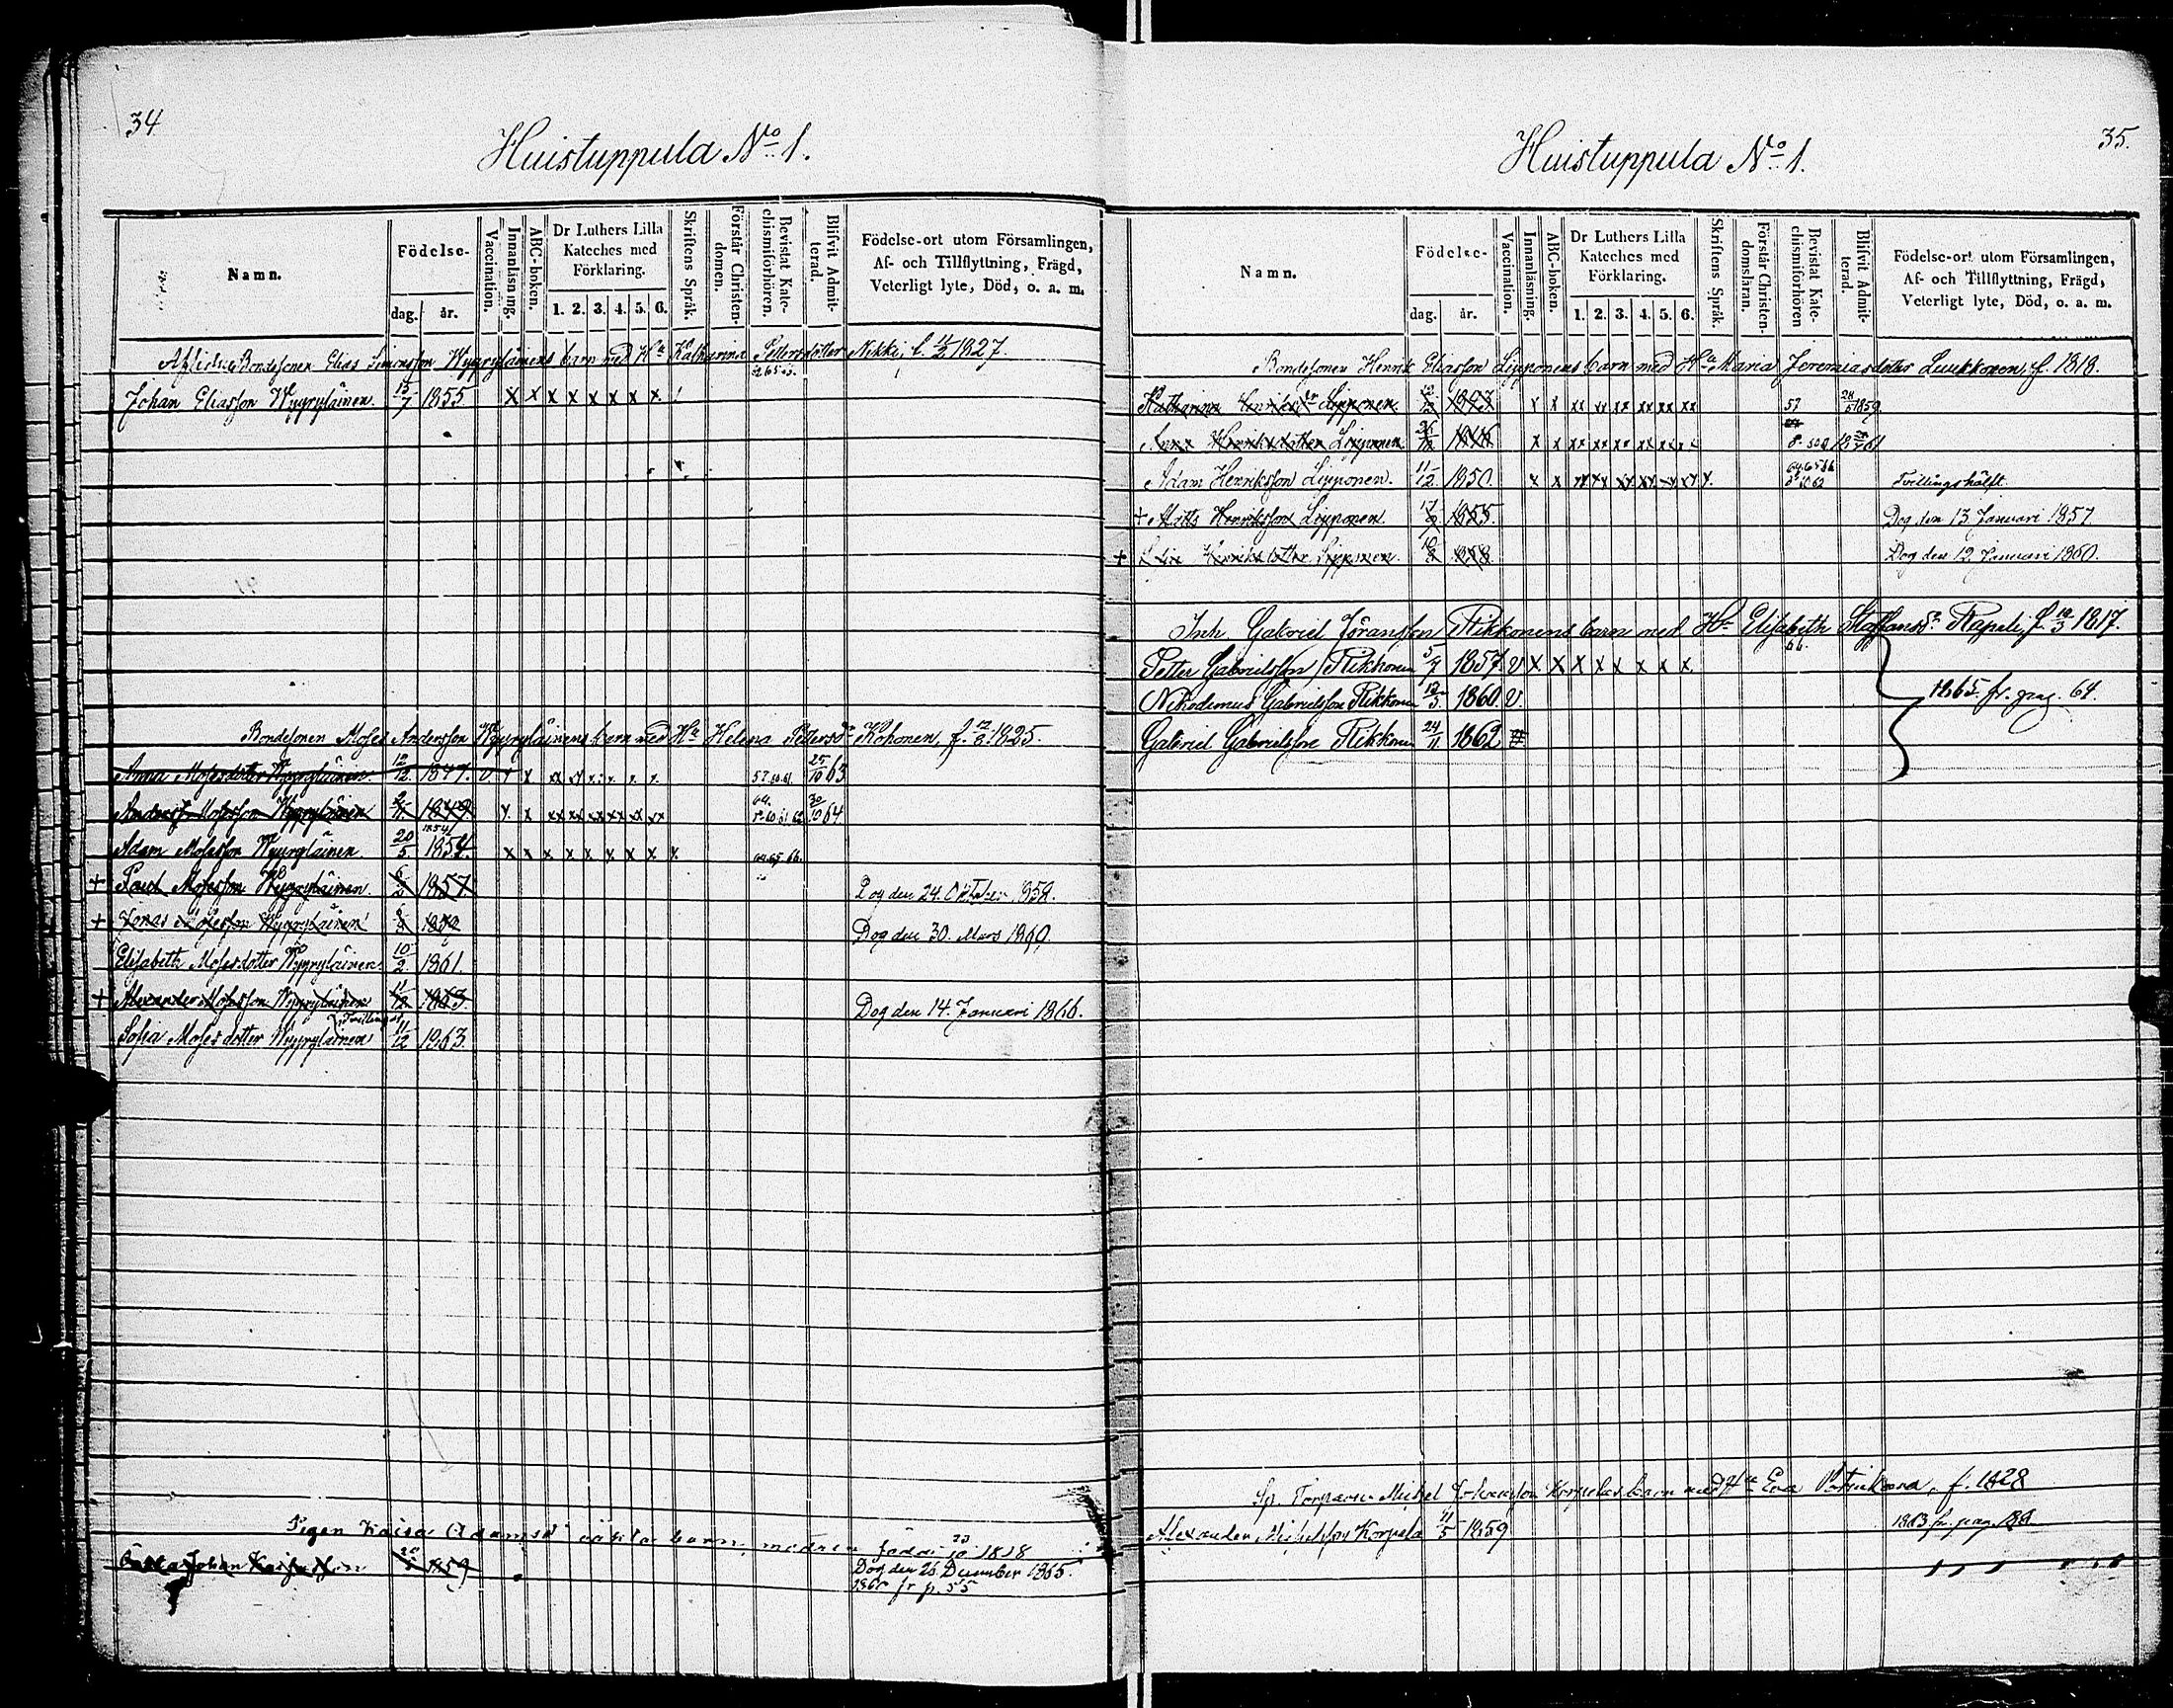 34
Huistuppula No 1.
Namn.
Födelse-
dag.
år.
Vaccination.
Innanläsning.
ABC-boken.
Dr Luthers Lilla
Kateches med
Förklaring.
1. 2. 3. 4. 5. 6.
Skriftens Språk.
Förstår Christen-
domen.
Bevistat Kate-
chismiförhören.
Blifvit Admit-
terad.
Födelse-ort utom Församlingen,
Af- och Tillflyttning, Frägd,
Veterligt lyte, Död, o. a. m.
Aflidne Bondesonen Elias Simonsson Wyyryläinens barn med Ha Katharina Pettersdotter Nikki, f. 1827.
Johan Eliasson Wyyryläinen. 15/7 1855. x x x x x x x x
Bondesonen Moses Andersson Wyyryläinens barn med Ha Helena Pettersdr Kohonen, f. 12/8 1825.
Anna Mosesdotter Wyyryläinen 12/12 1847. v x x xx xx x x x x 57.60.61. 25/10 63
Anders Mosesson Wyyryläinen 1849 x x xx xx xx xx xx xx 64. 30/10 64
Adam Mosesson Wyyryläinen. 20/5. 1854. x x x x x x x x x 64.65.66.
+ Paul Mosesson Wyyryläinen. 1857. Dog den 24. Oktober 1858.
+ Jonas Mosesson Wyyryläinen Dog den 30. Mars 1860.
Elisabeth Mosesdotter Wyyryläinen 10/2. 1861.
+ Alexander Mosesson Wyyryläinen 11/12 1863. Dog den 14. Januari 1866.
Tvillingar
Sofia Mosesdotter Wyyryläinen 11/12 1863.
Pigen Kaisa Adamsdr oäkta barn, modren född 1818
Johan 20 1859 Dog den 26. December 1865.
fr p. 55
35.
Huistuppula No 1.
Namn.
Födelse-
dag.
år.
Vaccination.
Innanläsning.
ABC-boken.
Dr Luthers Lilla
Kateches med
Förklaring.
1. 2. 3. 4. 5. 6.
Skriftens Språk.
Förstår Christen-
domsläran.
Bevistat Kate-
chismiförhören
Blifvit Admit-
terad.
Födelse-ort utom Församlingen,
Af- och Tillflyttning, Frägd,
Veterligt lyte, Död, o. a. m.
Bondesonen Henrik Eliasson Lipponens barn med Ha Maria Jeremiasdotter Luukkonen, f. 1818.
Katharina Henriksdr Lipponen. 12/12 1843 x x xx xx xx xx xx xx 57 1859
Anna Henriksdotter Lipponen 26/12 x x xx xx xx xx xx 61
Adam Henriksson Lipponen. 11/12. 1850. x x xx xx xx xx xx xx x. Tvillingshälft.
+ Matts Henriksson Lipponen. 1855. Dog den 13 Januari 1857
+ Henriksdotter Lipponen. 1858. Dog den 12 Januari 1860.
Inh. Gabriel Göransson Rikkonens barn med Ha Elisabeth Staffansdr Rapeli, f. 1817.
Petter Gabrielsson Rikkonen 5/4 1857. v x x x x x x x x 66.
1865. fr. pag. 64.
Nikodemus Gabrielsson Rikkonen 12/5. 1860. v.
Gabriel Gabrielsson Rikkonen 24/11 1862
Sp. Torparen Michel Johansson Korpelas barn med Ha Eva f. 1828
Alexander Michelsson Korpela 11/5 1859
1863 fr. pag.